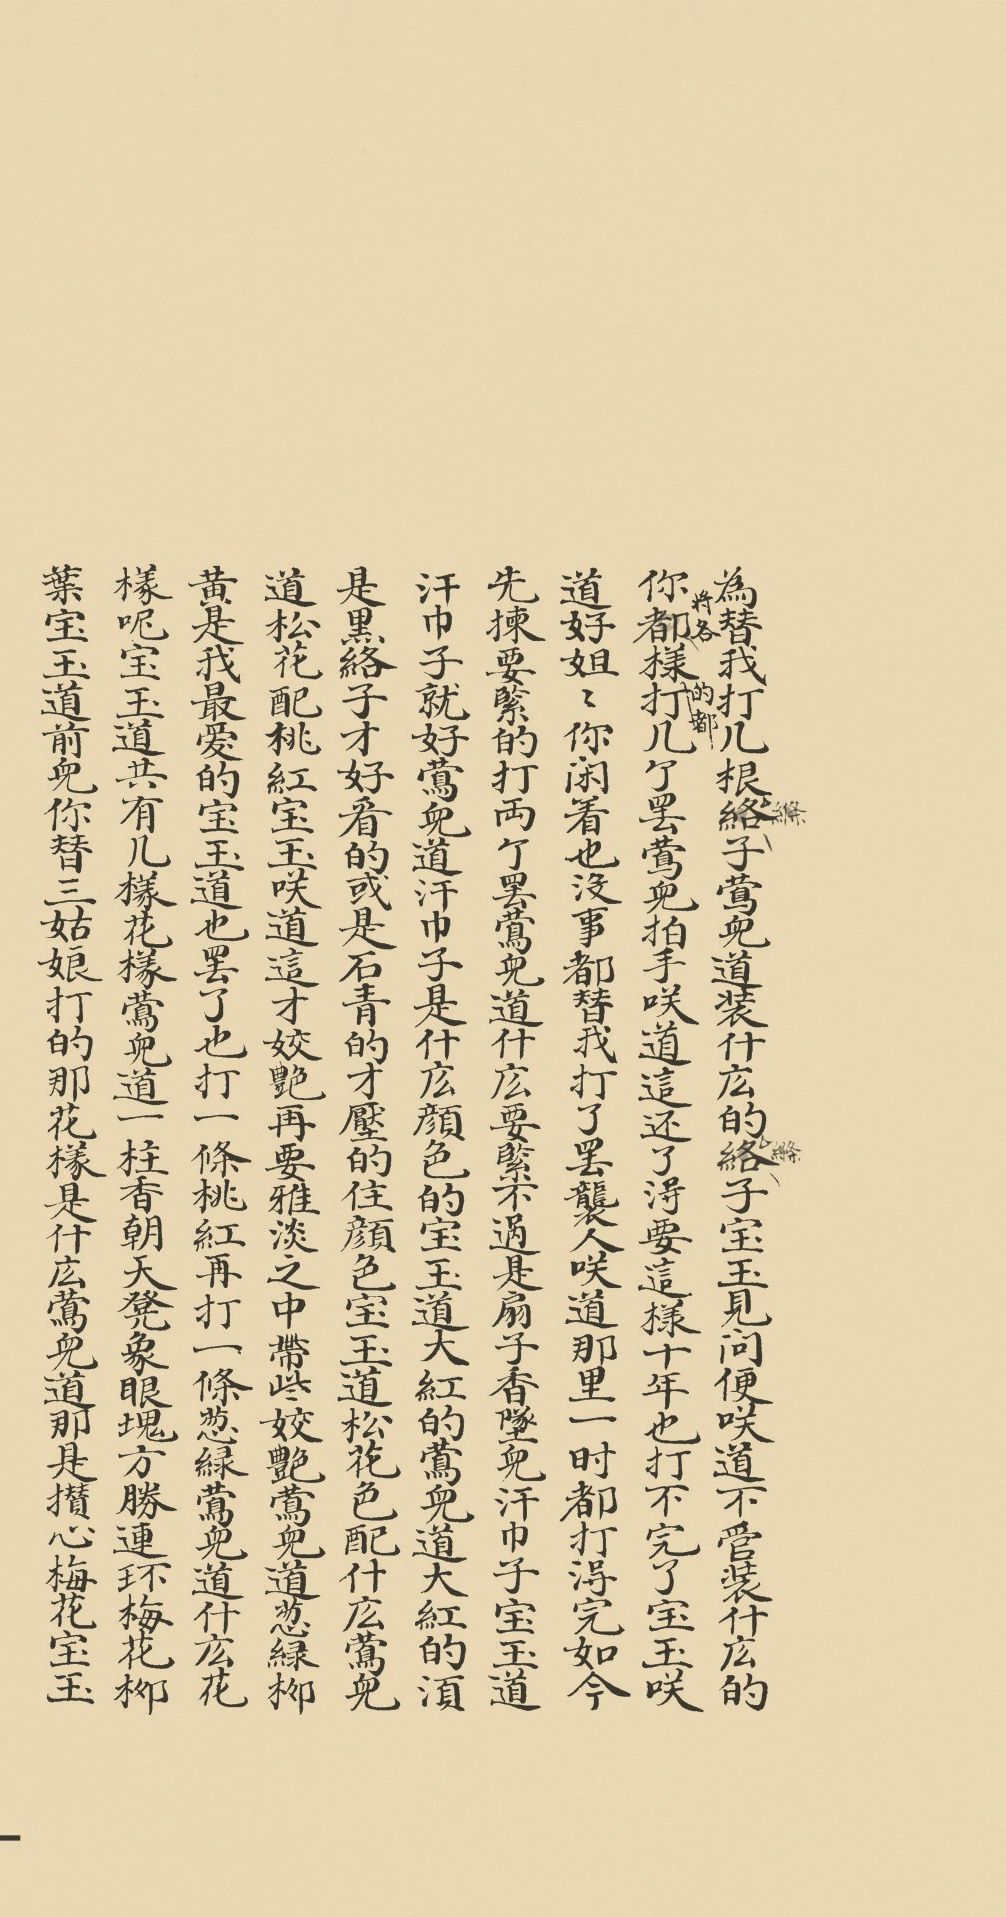 為替我打几根絡子鶯兒道装什庅的絡子宝玉見问便咲道不管装什庅的
縧
縧
你都樣打几个罢鶯兒拍手咲道這还了淂要這樣十年也打不完了宝玉咲
将各
的都
道好姐〻你闲着也没事都替我打了罢襲人咲道那里一时都打淂完如今
先揀要緊的打両个罢鶯兒道什庅要緊不過是扇子香墜兒汗巾子宝玉道
汗巾子就好鶯兒道汗巾子是什庅顔色的宝玉道大紅的鶯兒道大紅的湏
是黒絡子才好看的或是石青的才壓的住顔色宝玉道松花色配什庅鶯兒
道松花配桃紅宝玉咲道這才姣艷再要雅淡之中帶些姣艷鶯兒道葱緑柳
黄是我最爱的宝玉道也罢了也打一條桃紅再打一條葱緑鶯兒道什庅花
樣呢宝玉道共有几樣花樣鶯兒道一柱香朝天凳象眼塊方勝連环梅花柳
葉宝玉道前兒你替三姑娘打的那花樣是什庅鶯兒道那是攅心梅花宝玉